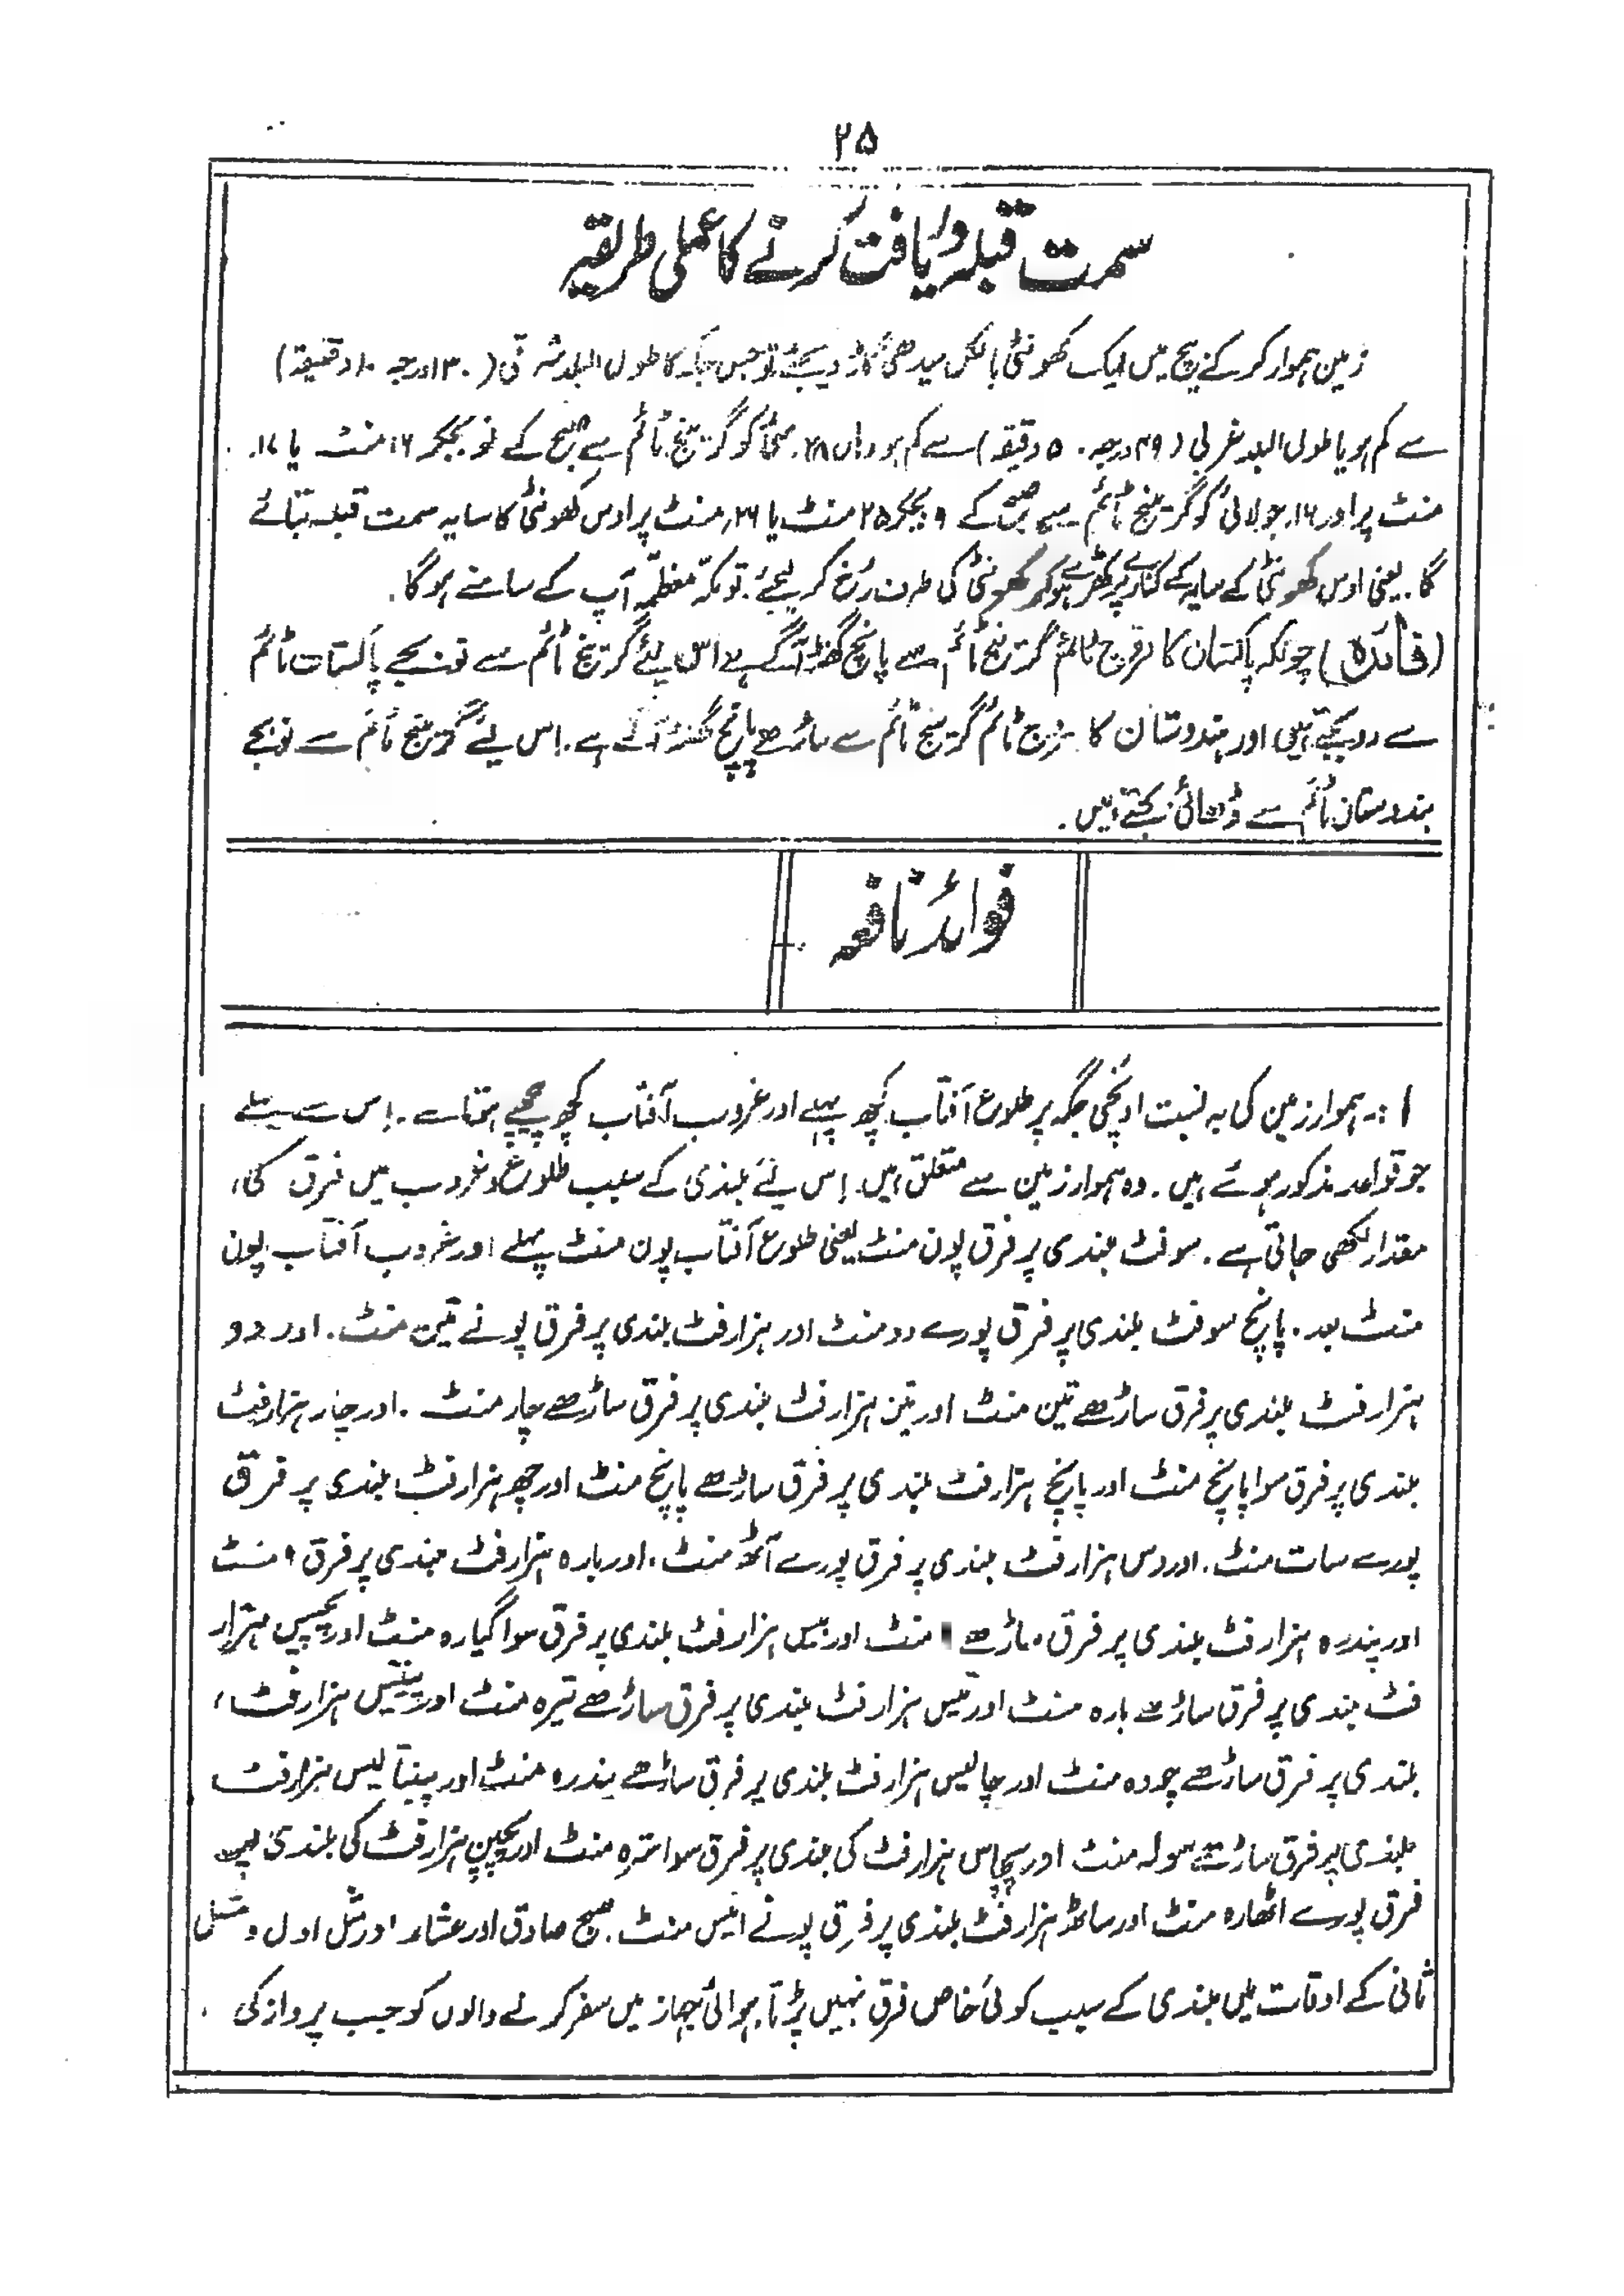 ۲۵
سمت قبلہ دریافت کرنے کا عملی طریقہ
زمین ہموار کرکے بیچ میں ایک کھونٹی بالکل سیدھی گاڑ دیجئے تو جس جگہ کا طول البلد شرقی (۱۳۰درجہ ۱۰دقیقہ)
سے کم ہو یا طول البلد غربی (۴۹درجہ ۵۰ دقیقہ) سے کم ہو وہاں ۲۸؍ مئی کو گرینیچ ٹائم سے صبح کے نو بجکر ۱۶ منٹ یا ۱۷
منٹ پر اور ۱۶؍جولائی کو گرینیچ ٹائم سے صبح کے ۹ بجکر ۲۵ منٹ یا ۲۶؍ منٹ پر اوس کھونٹی کا سایہ سمت قبلہ بتائے
گا۔ یعنی اوس کھونٹی کے سایہ کے کنارے پر کھڑے ہو کر کھونٹی کی طرف رُخ کر لیجئے۔ تو مکہ معظمہ آپ کے سامنے ہوگا۔
(فائدہ) چونکہ پاکستان کا مروج ٹائم گرینیچ ٹائم سے پانچ گھنٹہ آگے ہے اس لئے گرینیچ ٹائم سے نو بجے پاکستان ٹائم
سے دو بجتے ہیں اور ہندوستان کا مروج ٹائم گرینیچ ٹائم سے ساڑھے پانچ گھنٹہ آگے ہے۔ اس لئے گرینیچ ٹائم سے نو بجے
ہندوستان ٹائم سے ڈھائی بجتے ہیں۔
فوائد نافعہ
۱:۔ ہموار زمین کی بہ نسبت اونچی جگہ پر طلوع آفتاب کچھ پہلے اور غروب آفتاب کچھ پیچھے ہوتا ہے۔ اس سے پہلے
جو قواعد مذکور ہوئے ہیں۔ وہ ہموار زمین سے متعلق ہیں۔ اس لئے بلندی کے سبب طلوع و غروب میں فرق کی،
مقدار لکھی جاتی ہے۔ سو فٹ بلندی پر فرق پون منٹ یعنی طلوع آفتاب پون منٹ پہلے اور غروب آفتاب پون
منٹ بعد۔ پانچ سو فٹ بلندی پر فرق پورے دو منٹ اور ہزار فٹ بلندی پر فرق پونے تین منٹ۔ اور دو
ہزار فٹ بلندی پر فرق ساڑھے تین منٹ اور تین ہزار فٹ بلندی پر فرق ساڑھے چار منٹ۔ اور چار ہزار فٹ
بلندی پر فرق سوا پانچ منٹ اور پانچ ہزار فٹ بلندی پر فرق ساڑھے پانچ منٹ اور چھ ہزار فٹ بلندی پر فرق
پورے سات منٹ۔ اور دس ہزار فٹ بلندی پر فرق پورے آٹھ منٹ، اور بارہ ہزار فٹ بلندی پر فرق ۹ منٹ
اور پندرہ ہزار فٹ بلندی پر فرق ساڑھے منٹ اور بیس ہزار فٹ بلندی پر فرق سوا گیارہ منٹ اور پچیس ہزار
فٹ بلندی پر فرق ساڑھے بارہ منٹ اور تیس ہزار فٹ بلندی پر فرق ساڑھے تیرہ منٹ اور پینتیس ہزار فٹ،
بلندی پر فرق ساڑھے چودہ منٹ اور چالیس ہزار فٹ بلندی پر فرق ساڑھے پندرہ منٹ اور پینتالیس ہزار فٹ
بلندی پر فرق ساڑھے سولہ منٹ اور پچاس ہزار فٹ کی بلندی پر فرق سوا سترہ منٹ اور پچپن ہزار فٹ کی بلندی پر
فرق پورے اٹھارہ منٹ اور ساٹھ ہزار فٹ بلندی پر فرق پونے انیس منٹ۔ صبح صادق اور عشاء اور مثل اول و مثل
ثانی کے اوقات میں بلندی کے سبب کوئی خاص فرق نہیں پڑتا۔ ہوائی جہاز میں سفر کرنے والوں کو جب پرواز کی